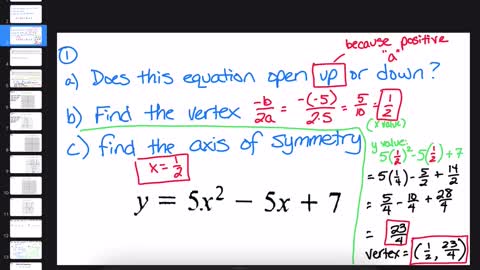 ①
because positive
"a"
a) Does this equation open up or down?
b) Find the vertex -b/2a = -(-5)/2·5 = 5/10 = 1/2
(x value)
c) find the axis of symmetry
x = 1/2
y = 5x² - 5x + 7
y value:
5(1/2)² - 5(1/2) + 7
= 5(1/4) - 5/2 + 14/2
= 5/4 - 10/4 + 28/4
= 23/4
vertex = (1/2, 23/4)